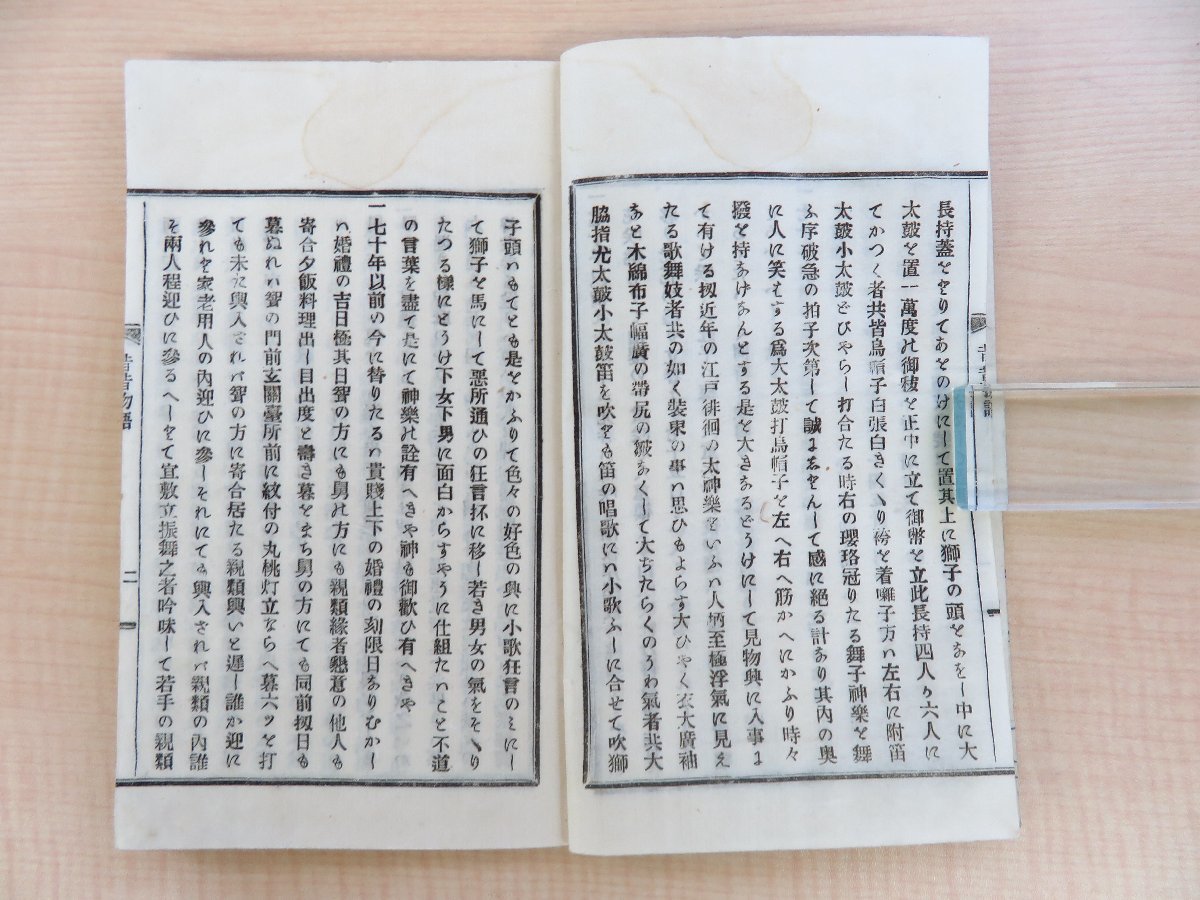 長持蓋をとりてあをのけにして置其上に獅子の頭をなをし中に大
太鼓を置一萬度の御祓を正中に立て御幣を立此長持四人か六人に
てかつく者共皆烏帽子白張白きくゝり袴を着囃子方ハ左右に附笛
太鼓小太鼓をひやらし打合たる時右の瓔珞冠りたる舞子神樂を舞
ふ序破急の拍子次第して誠に志をんして感に絶る計あり其内の奥
に人に笑わする爲大太鼓打烏帽子を左へ右へ筋かへにかふり時々
撥を持あけあんとする是を大きあるどうけにして見物興に入事に
て有ける扨近年の江戸徘徊の太神樂といふハ人柄至極浮氣に見え
たる歌舞妓者共の如く裝束の事ハ思ひもよらす大ひやく衣大廣袖
あと木綿布子幅廣の帶尻の皺あくして大ちたらくのうわ氣者共大
脇指尤太鼓小太鼓笛を吹とも笛の唱歌にハ小歌ふしに合せて吹獅
子頭ハもてとも是をかふりて色々の好色の興に小歌狂言のミにし
て獅子を馬にして悪所通ひの狂言抔に移し若き男女の氣をそゝり
たつる樣にとうけ下女下男に面白からすやうに仕組たハこと不道
の言葉を盡て是にて神樂の詮有へきや神も御歡ひ有へきや
一七十年以前の今に替りたるハ貴賤上下の婚禮の刻限日ありむかし
ハ婚禮の吉日極其日聟の方にも舅の方にも親類緣者懇意の他人も
寄合夕飯料理出し目出度と壽き暮をまち舅の方にても同前扨日も
暮ぬれハ聟の門前玄關臺所前に紋付の丸桃灯立ならへ暮六ツを打
ても未た輿入されハ聟の方に寄合居たる親類輿いと遲し誰か迎に
參れと家老用人の內迎ひに參しそれにても輿入されハ親類の內誰
そ兩人程迎ひに參るへしとて宜敷立振舞之者吟味して若手の親類
昔昔物語
二